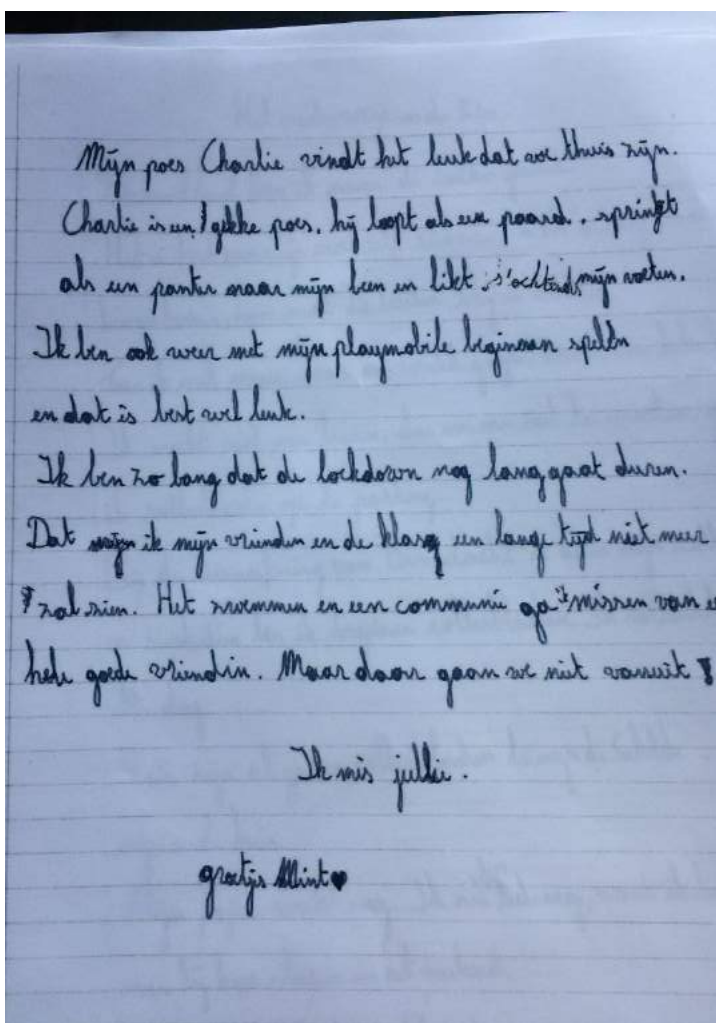 Mijn poes Charlie vindt het leuk dat we thuis zijn.
Charlie is een gekke poes, hij loopt als een paard, springt
als een panter naar mijn been en likt s'ochtends mijn voeten.
Ik ben ook weer met mijn playmobile beginnen spelen
en dat is best wel leuk.
Ik ben zo bang dat de lockdown nog lang gaat duren.
Dat ik mijn vrienden en de klas een lange tijd niet meer
zal zien. Het zwemmen en een communie ga ik missen van
hele goede vriendin. Maar daar gaan we niet vanuit
Ik mis jullie.
groetjes Mint♥